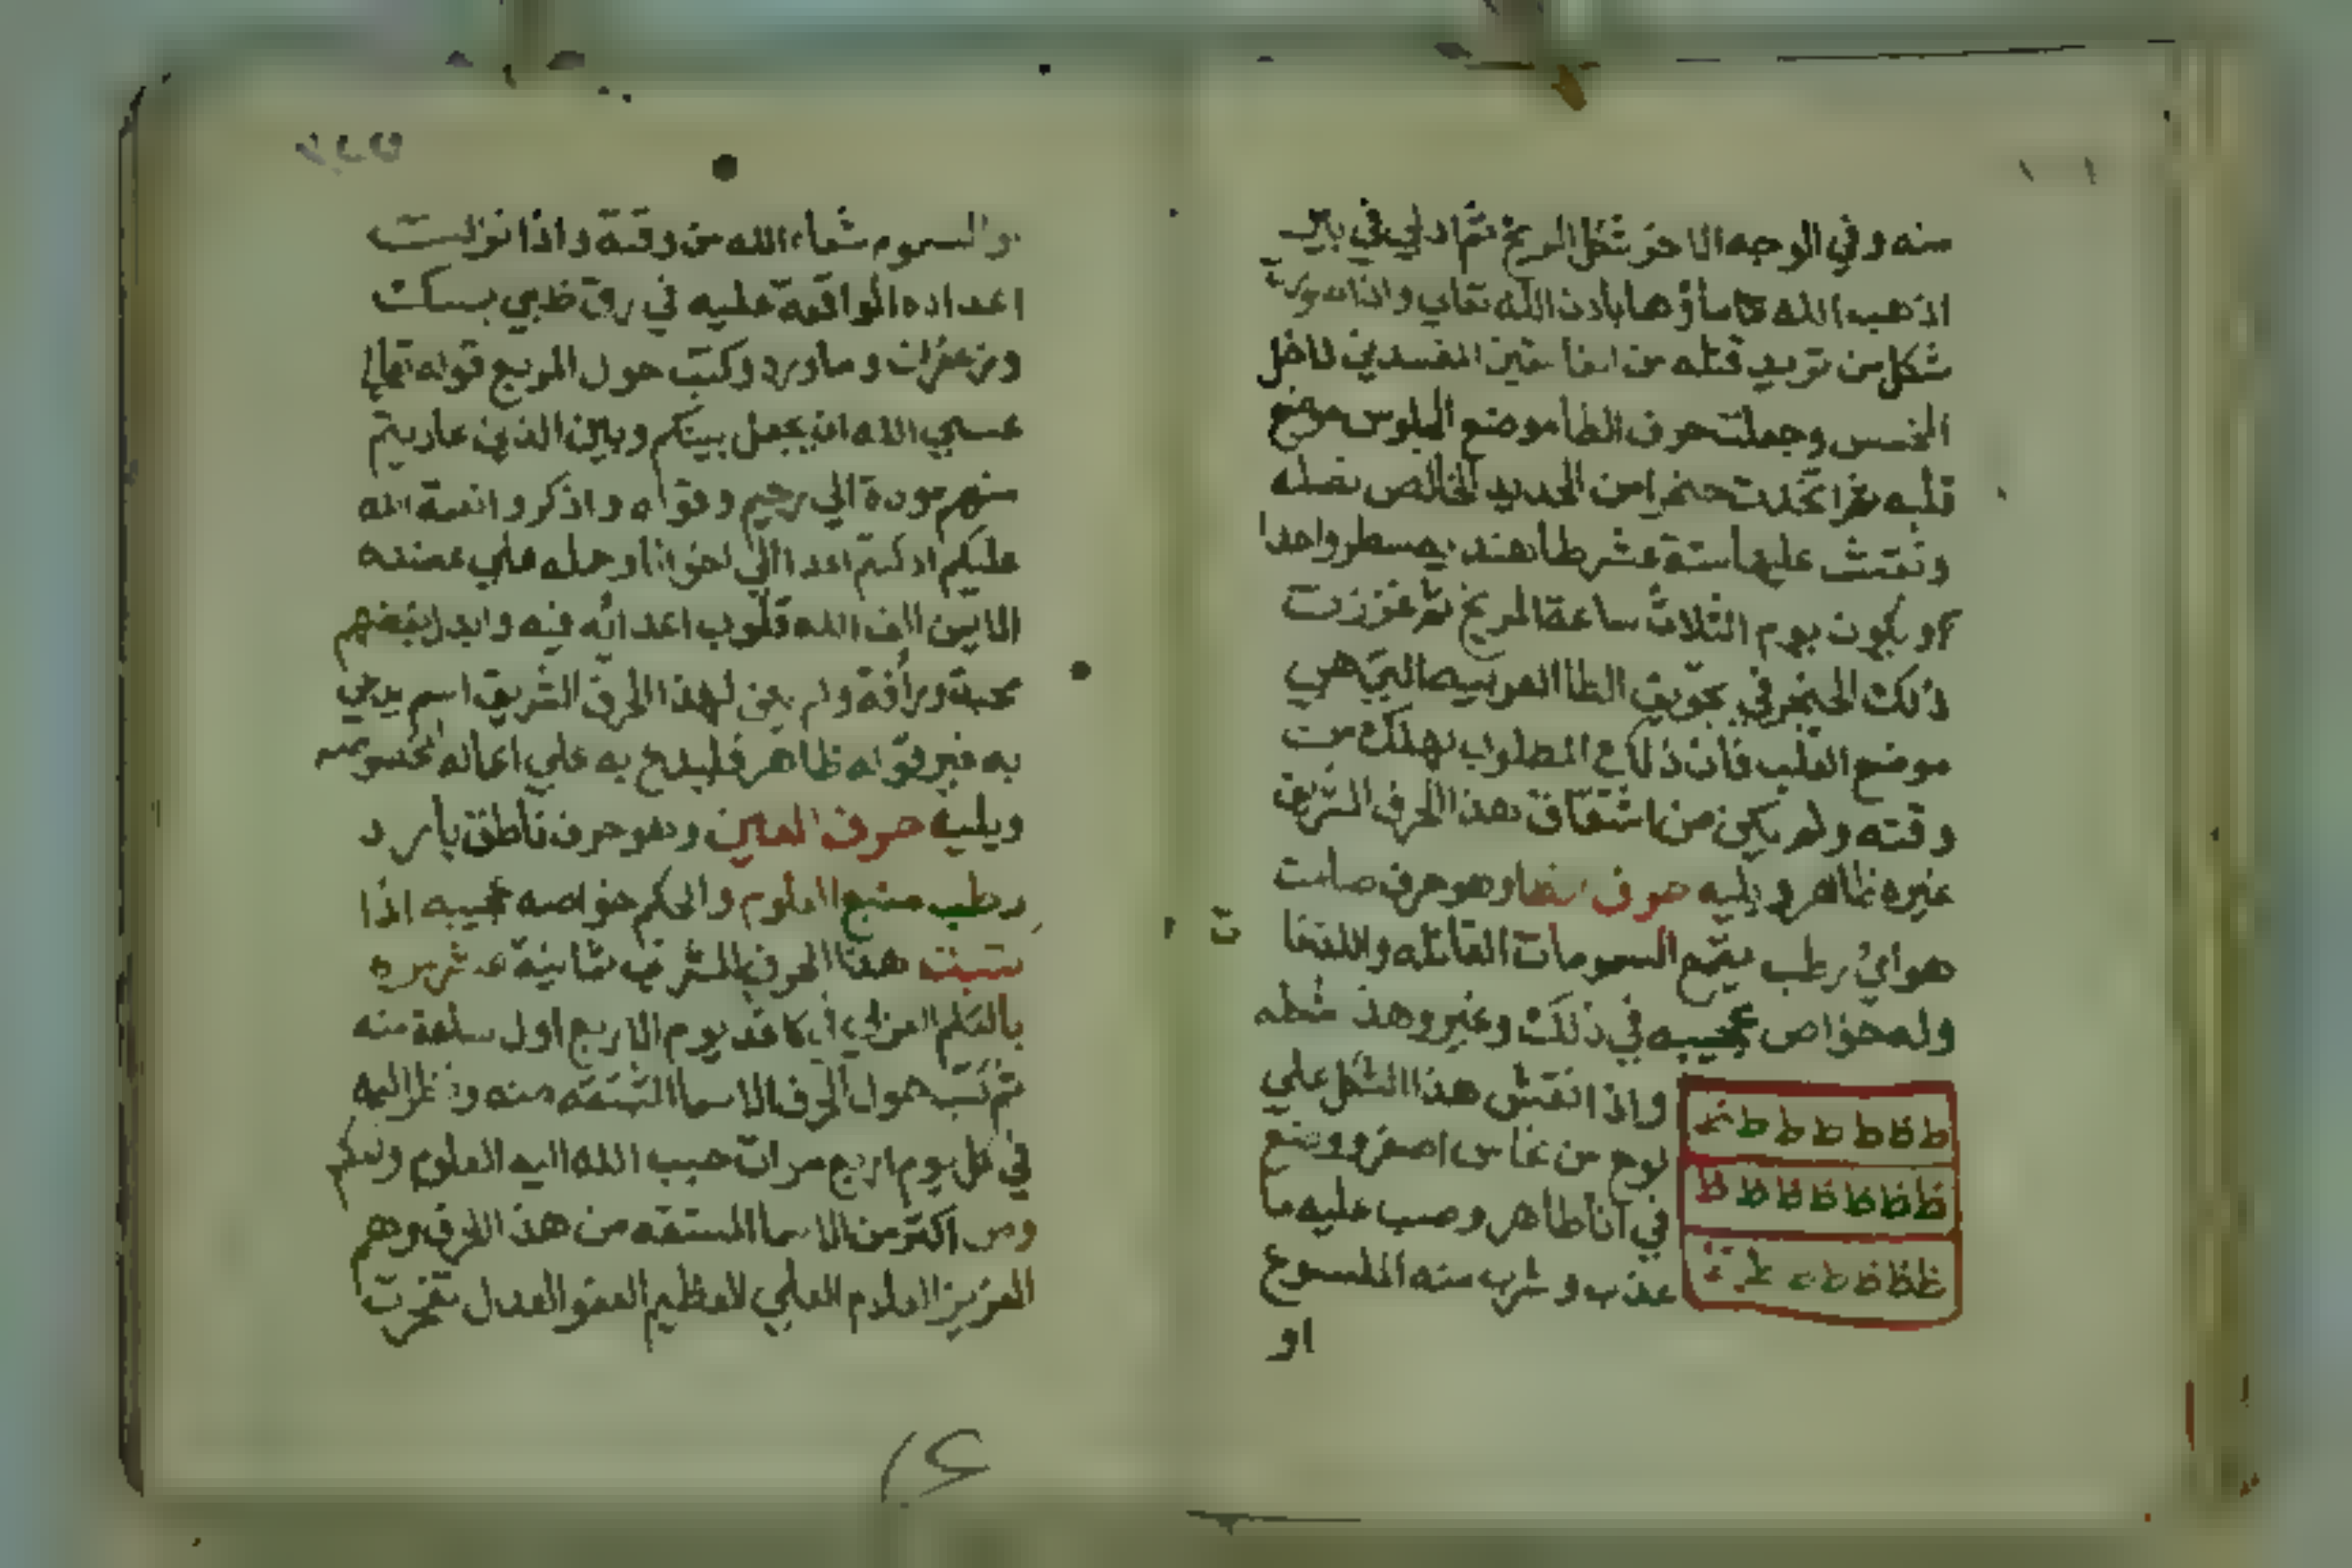 منه وفي الوجه الاخر شكل المريخ ثم ادلي في بير
اذهب الله ماؤها باذن الله تعالي واذا
شكل من تريد قتله من المفسدين داخل
الخمس وجعلت حرف الطا موضع الجلوس موضع
قلبه ثم اتخذت خنجرا من الحديد الخالص نصله
ونقشت عليها ستة عشر طا هنديه سطرا واحدا
ويكون يوم الثلاث ساعة المريخ ثم غرزت
ذلك الخنجر في تجويف الطا العربيه التي هي
موضع القلب فان ذلك المطلوب يهلك من
وقته ولم يكن من اشتقاق هذا الحرف الشريف
غيره ظاهر ويليه حرف الظا وهو حرف صامت
هوائ رطب يقمع السمومات القاتله
وله خواص عجيبه في ذلك وغيره وهذ شكله
واذا نقش هذا الشكل علي
لوح من نحاس اصفر ووضع
في انا طاهر وصب عليه ما
عذب وشرب منه الملسوع
او
والسموم شفاه الله من وقته واذا نزلت
اعداده الواقعة عليه في رق ظبي بمسك
وزعفران وماورد وكتب حول المربع قوله تعالي
عسي الله ان يجعل بينكم وبين الذين عاديتم
منهم مودة الي رحيم وقوله واذكروا نعمة الله
عليكم اذ كنتم اعدا الي اخوانا وحمله علي عضده
الايمن الف الله قلوب اعدائه فيه وابدل بغضهم
محبة ورأفة ولم يكن لهذا الحرف الشريف اسم يدعي
به غير قوله ظاهر فليدع به علي اعماله
ويليه حرف العين وهو حرف ناطق بارد
رطب منبع العلوم والحكم خواصه عجيبه اذا
كتبت هذا الحرف الشريف ثمانية عشر مره
بالقلم العربي في كاغد يوم الاربع اول ساعة منه
ثم كتب حول الحرف الاسما المشتقه منه ونظر اليه
في كل يوم اربع مرات حبب الله اليه العلوم
ومن اكثر من الاسما المشتقه من هذ الحرف وهم
العزيز العلام العلي العظيم العفو العدل تفجرت